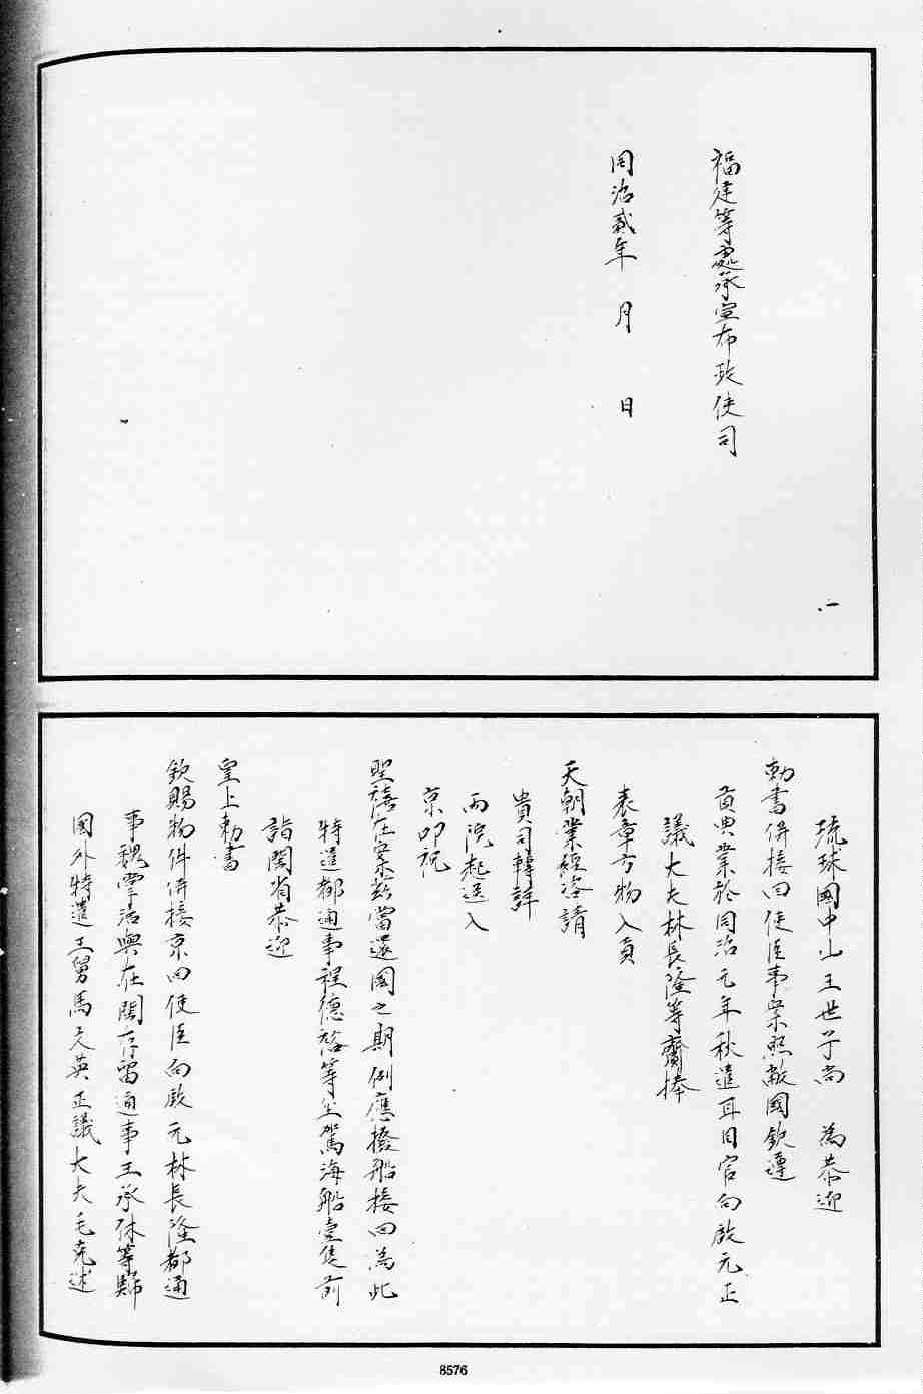 福建等處承宣布政使司
同治貳年　月　日
琉球國中山王世子尚　為恭迎
勅書併接回使臣事案照敝國欽遵
貢典業於同治元年秋遣耳目官向啟元正
議大夫林長隆等齎捧
表章方物入貢
天朝業經咨請
貴司轉詳
兩院起送入
京叩祝
聖禧在案茲當還國之期例應撥船接回為此
特遣都通事程德裕等坐駕海船壹隻前
詣閩省恭迎
皇上勅書
欽賜物件併接京回使臣向啟元林長隆都通
事魏掌治與在閩存留通事王承休等歸
國外特遣王舅馬文英正議大夫毛克述
8576